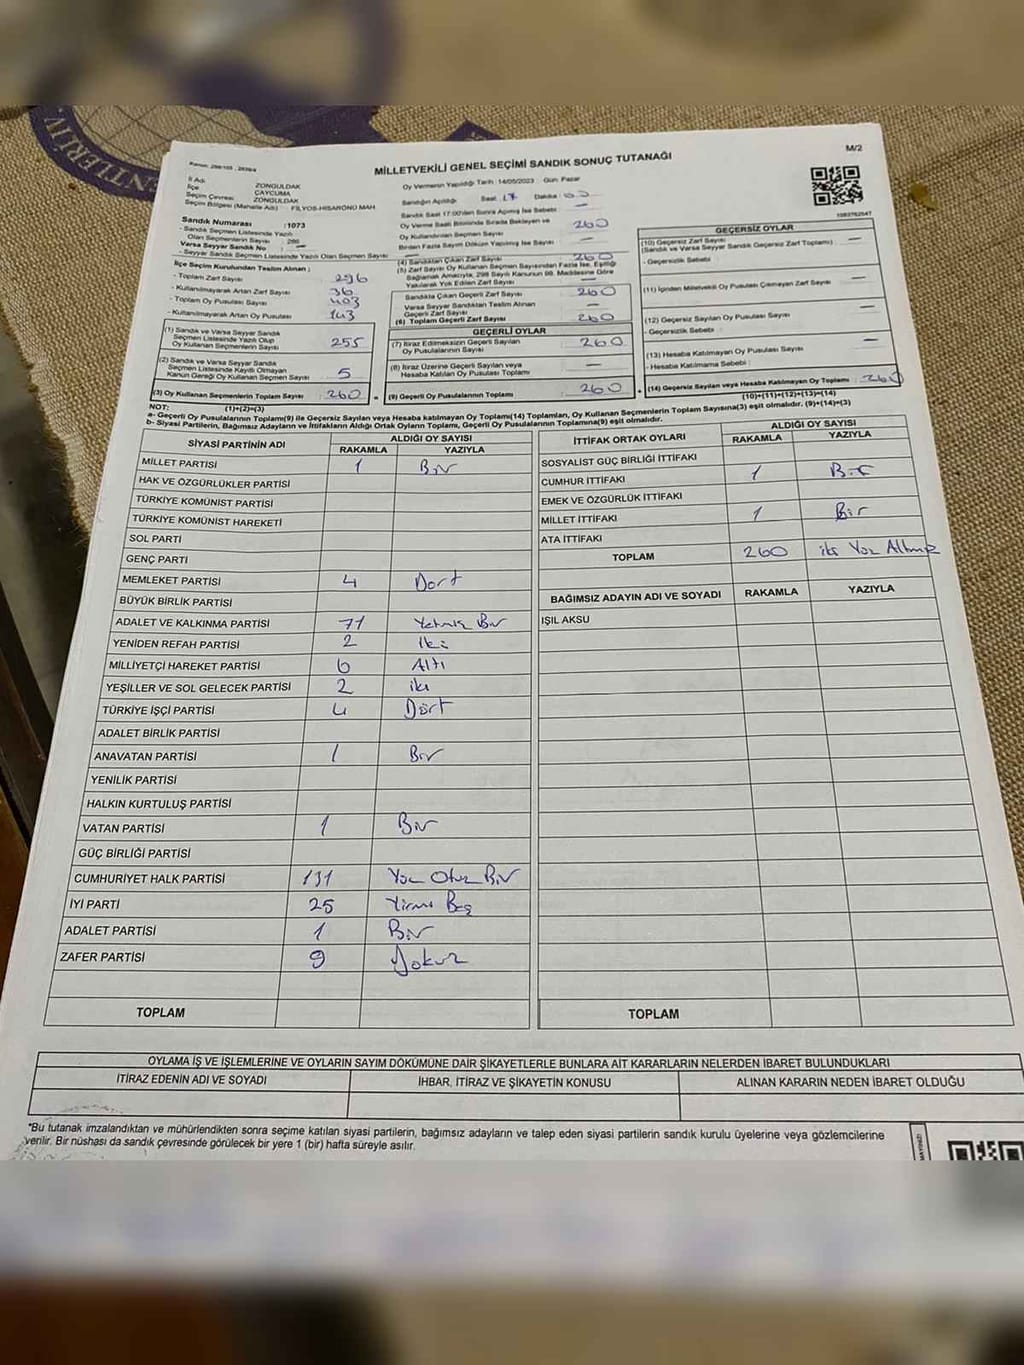 MİLLETVEKİLİ GENEL SEÇİMİ SANDIK SONUÇ TUTANAĞI
M/2
İl Adı ZONGULDAK
İlçe ÇAYCUMA
Seçim Çevresi ZONGULDAK
Seçim Bölgesi (Mahalle Adı) : FİLYOS-HİSARÖNÜ MAH
Oy Vermenin Yapıldığı Tarih : 14/05/2023 Gün: Pazar
Sandığın Açıldığı Saat : 17 Dakika
Sandık Saat 17:00'den Sonra Açılmış İse Sebebi: —
Oy Verme Saati Bitiminde Sırada Bekleyen ve
Oy Kullandırılan Seçmen Sayısı 260
Birden Fazla Sayım Döküm Yapılmış İse Sayısı —
Sandık Numarası : 1073
- Sandık Seçmen Listesinde Yazılı
Olan Seçmenlerin Sayısı : 286
Varsa Seyyar Sandık No : —
- Seyyar Sandık Seçmen Listesinde Yazılı Olan Seçmen Sayısı : —
İlçe Seçim Kurulundan Teslim Alınan ;
- Toplam Zarf Sayısı 296
- Kullanılmayarak Artan Zarf Sayısı 36
- Toplam Oy Pusulası Sayısı 403
- Kullanılmayarak Artan Oy Pusulası 143
(1) Sandık ve Varsa Seyyar Sandık
Seçmen Listesinde Yazılı Olup
Oy Kullanan Seçmenlerin Sayısı 255
(2) Sandık ve Varsa Seyyar Sandık
Seçmen Listesinde Kaydı Olmayan
Kanun Gereği Oy Kullanan Seçmen Sayısı 5
(3) Oy Kullanan Seçmenlerin Toplam Sayısı 260
(1)+(2)=(3)
(4) Sandıktan Çıkan Zarf Sayısı 260
(5) Zarf Sayısı Oy Kullanan Seçmen Sayısından Fazla İse, Eşitliği
Sağlamak Amacıyla, 298 Sayılı Kanunun 98. Maddesine Göre
Yakılarak Yok Edilen Zarf Sayısı —
Sandıkta Çıkan Geçerli Zarf Sayısı 260
Varsa Seyyar Sandıktan Teslim Alınan
Geçerli Zarf Sayısı —
(6) Toplam Geçerli Zarf Sayısı 260
GEÇERLİ OYLAR
(7) İtiraz Edilmeksizin Geçerli Sayılan
Oy Pusulalarının Sayısı 260
(8) İtiraz Üzerine Geçerli Sayılan veya
Hesaba Katılan Oy Pusulası Toplamı —
(9) Geçerli Oy Pusulalarının Toplamı 260
GEÇERSİZ OYLAR
(10) Geçersiz Zarf Sayısı
(Sandık ve Varsa Seyyar Sandık Geçersiz Zarf Toplamı) : —
- Geçersizlik Sebebi :
(11) İçinden Milletvekili Oy Pusulası Çıkmayan Zarf Sayısı —
(12) Geçersiz Sayılan Oy Pusulası Sayısı —
- Geçersizlik Sebebi :
(13) Hesaba Katılmayan Oy Pusulası Sayısı —
- Hesaba Katılmama Sebebi :
(14) Geçersiz Sayılan veya Hesaba Katılmayan Oy Toplamı : 260
(10)+(11)+(12)+(13)=(14)
NOT:
a- Geçerli Oy Pusulalarının Toplamı(9) ile Geçersiz Sayılan veya Hesaba katılmayan Oy Toplamı(14) Toplamları, Oy Kullanan Seçmenlerin Toplam Sayısına(3) eşit olmalıdır. (9)+(14)=(3)
b- Siyasi Partilerin, Bağımsız Adayların ve İttifakların Aldığı Ortak Oyların Toplamı, Geçerli Oy Pusulalarının Toplamına(9) eşit olmalıdır.
SİYASİ PARTİNİN ADI ALDIĞI OY SAYISI
RAKAMLA YAZIYLA
MİLLET PARTİSİ 1 Bir
HAK VE ÖZGÜRLÜKLER PARTİSİ
TÜRKİYE KOMÜNİST PARTİSİ
TÜRKİYE KOMÜNİST HAREKETİ
SOL PARTİ
GENÇ PARTİ
MEMLEKET PARTİSİ 4 Dört
BÜYÜK BİRLİK PARTİSİ
ADALET VE KALKINMA PARTİSİ 71 Yetmiş Bir
YENİDEN REFAH PARTİSİ 2 İki
MİLLİYETÇİ HAREKET PARTİSİ 6 Altı
YEŞİLLER VE SOL GELECEK PARTİSİ 2 iki
TÜRKİYE İŞÇİ PARTİSİ 4 Dört
ADALET BİRLİK PARTİSİ
ANAVATAN PARTİSİ 1 Bir
YENİLİK PARTİSİ
HALKIN KURTULUŞ PARTİSİ
VATAN PARTİSİ 1 Bir
GÜÇ BİRLİĞİ PARTİSİ
CUMHURİYET HALK PARTİSİ 131 Yüz Otuz Bir
İYİ PARTİ 25 Yirmi Beş
ADALET PARTİSİ 1 Bir
ZAFER PARTİSİ 9 Dokuz
TOPLAM
İTTİFAK ORTAK OYLARI ALDIĞI OY SAYISI
RAKAMLA YAZIYLA
SOSYALİST GÜÇ BİRLİĞİ İTTİFAKI
CUMHUR İTTİFAKI 1 Bir
EMEK VE ÖZGÜRLÜK İTTİFAKI
MİLLET İTTİFAKI 1 Bir
ATA İTTİFAKI
TOPLAM 260 iki Yüz Altmış
BAĞIMSIZ ADAYIN ADI VE SOYADI RAKAMLA YAZIYLA
IŞIL AKSU
TOPLAM
OYLAMA İŞ VE İŞLEMLERİNE VE OYLARIN SAYIM DÖKÜMÜNE DAİR ŞİKAYETLERLE BUNLARA AİT KARARLARIN NELERDEN İBARET BULUNDUKLARI
İTİRAZ EDENİN ADI VE SOYADI İHBAR, İTİRAZ VE ŞİKAYETİN KONUSU ALINAN KARARIN NEDEN İBARET OLDUĞU
*Bu tutanak imzalandıktan ve mühürlendikten sonra seçime katılan siyasi partilerin, bağımsız adayların ve talep eden siyasi partilerin sandık kurulu üyelerine veya gözlemcilerine
verilir. Bir nüshası da sandık çevresinde görülecek bir yere 1 (bir) hafta süreyle asılır.